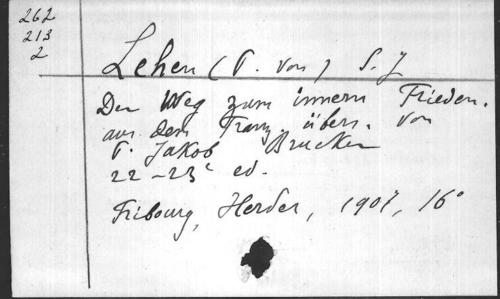 262
213
2
Lehen (P. von) S. J
Der Weg zum innern Frieden.
aus dem Franz. übers. von
P. Jakob Brucker
22-23e ed.
Fribourg, Herder, 1907, 16°